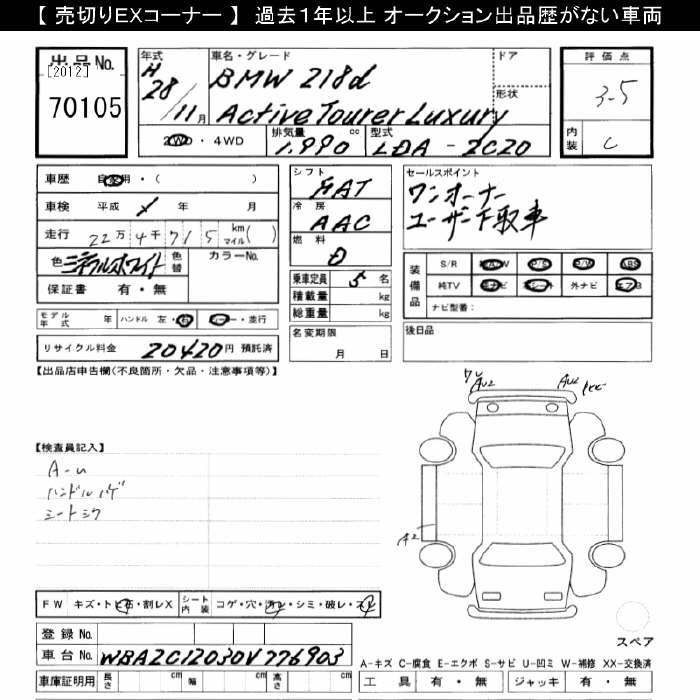 【 売切りEXコーナー 】 過去1年以上 オークション出品歴がない車両
出品 No.
[2012]
70105
年式
H
28/11 月
車名・グレード
BMW 218d
Active Tourer Luxury
ドア
形状
2WD ・ 4WD
排気量
1.990 cc
型式
LDA - 2C20
評価点
3-5
内装
C
車歴 自家用・( )
車検 平成 年 月
走行 22万 4千 715 km マイル ( )
色 ミネラルホワイト 色替 カラーNo.
保証書 有・無
シフト
FAT
冷房
AAC
燃料
D
セールスポイント
ワンオーナー
ユーザー下取車
乗車定員 5 名
積載量 kg
総重量 kg
装備品 S/R A/W P/S P/W ABS
純TV 純ナビ 本シート 外ナビ エアB
ナビ型番:
モデル年式 年 ハンドル 左・右 ディーラー・並行
名変期限
月 日
後日品
リサイクル料金 20420 円 預託済
【出品店申告欄(不良箇所・欠品・注意事項等)】
ワレ AU2 AU2
【検査員記入】
A-U
ハンドルハゲ
シートシワ
A2
FW キズ・トビ石・割レX シート内装 コゲ・穴・汚レ・シミ・破レ・スレ
登録 No.
車台 No. WBA2C12030V776903
スペア
A-キズ C-腐食 E-エクボ S-サビ U-凹ミ W-補修 XX-交換済
車庫証明用 長さ cm 幅 cm 高さ cm
工具 有・無 ジャッキ 有・無